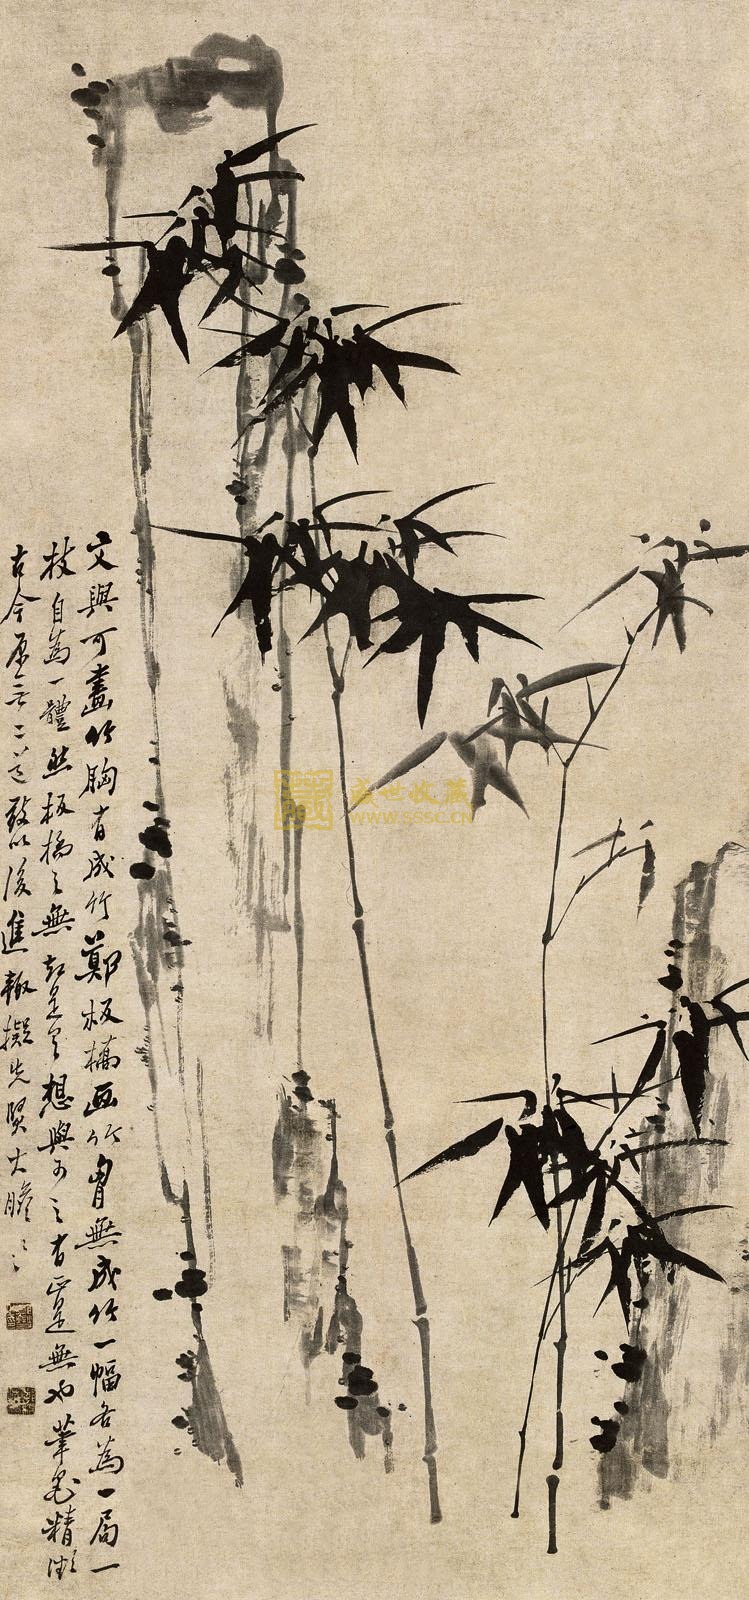 文與可畫竹胸有成竹鄭板橋画竹胷無成竹一幅各為一局一
枝自為一體然板橋之無 想與可之有 是無也筆墨精
古今原無二道 以後進輙擬先賢大膽大膽
盛世收藏
WWW.SSSC.CN